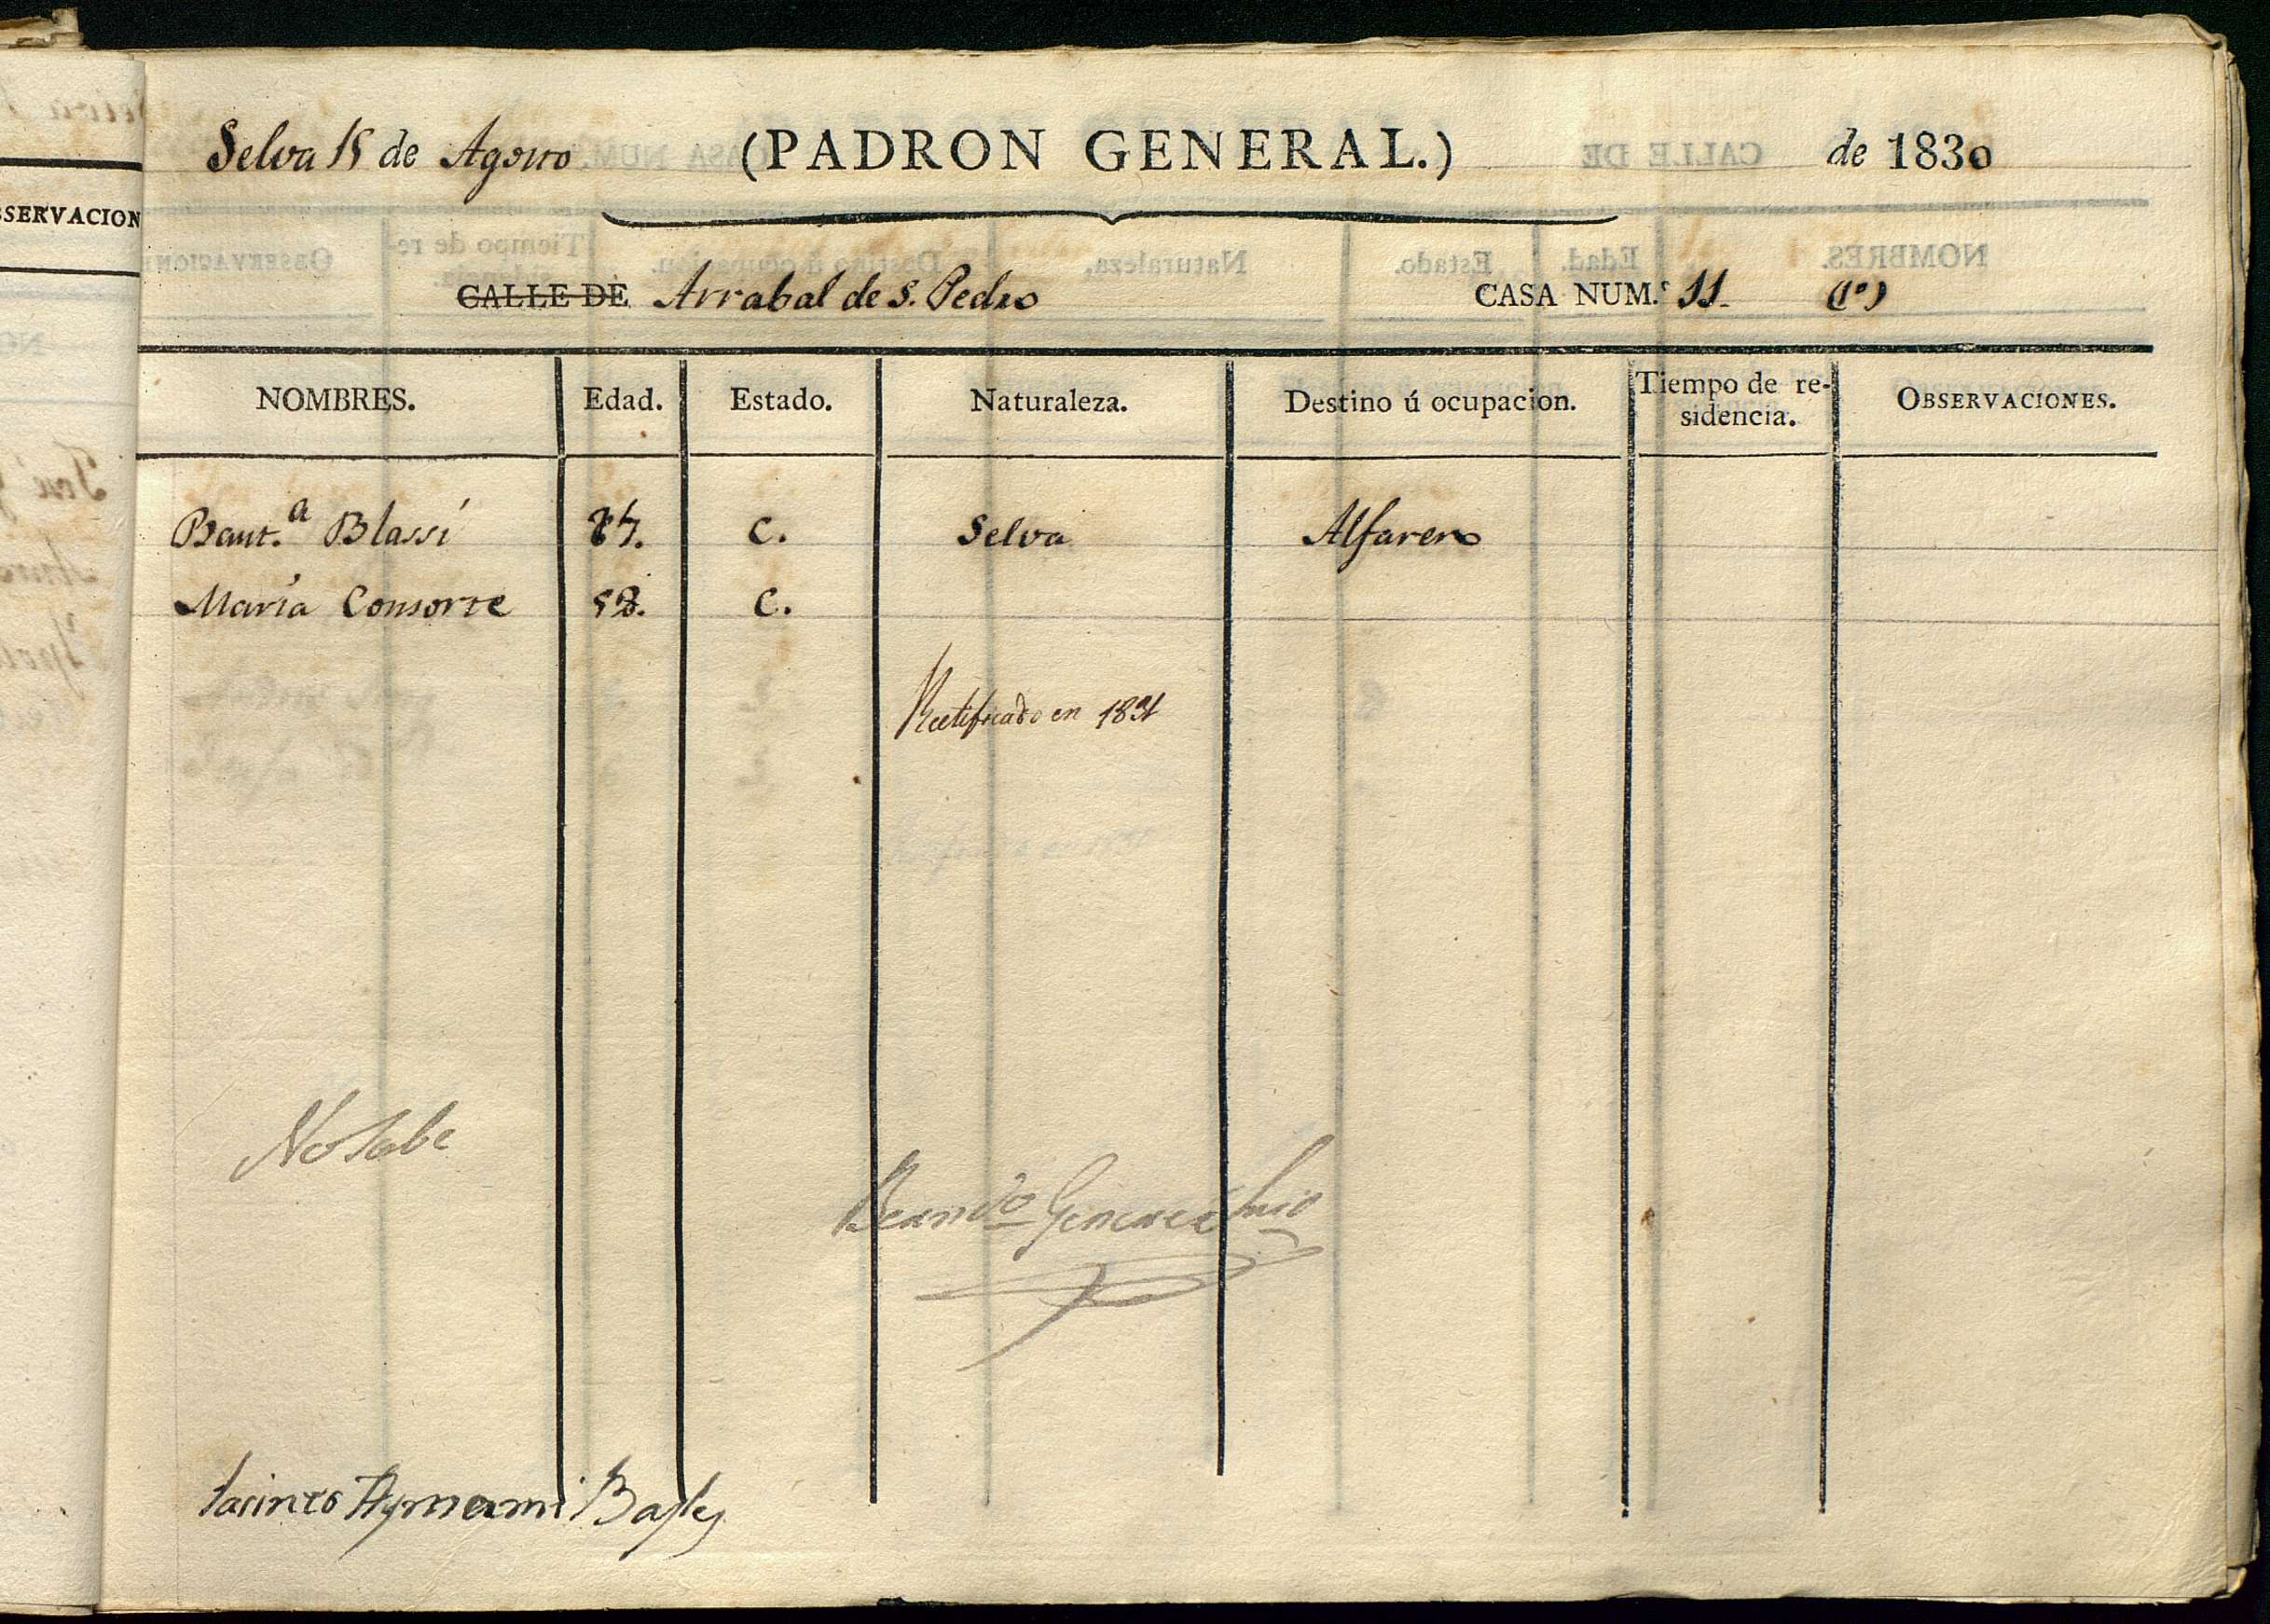 Selva 15 de Agosto (PADRON GENERAL.) de 1830
CALLE DE Arrabal de S. Pedro CASA NUM.º 11. (1º)
SERVACION
NOMBRES. Edad. Estado. Naturaleza. Destino ú ocupacion. Tiempo de residencia. OBSERVACIONES.
Baut.ª Blassi C. Selva Alfarero
María Consorte 58. C.
Rectificado en 1831
No sabe
Jacinto Aymami Bayle